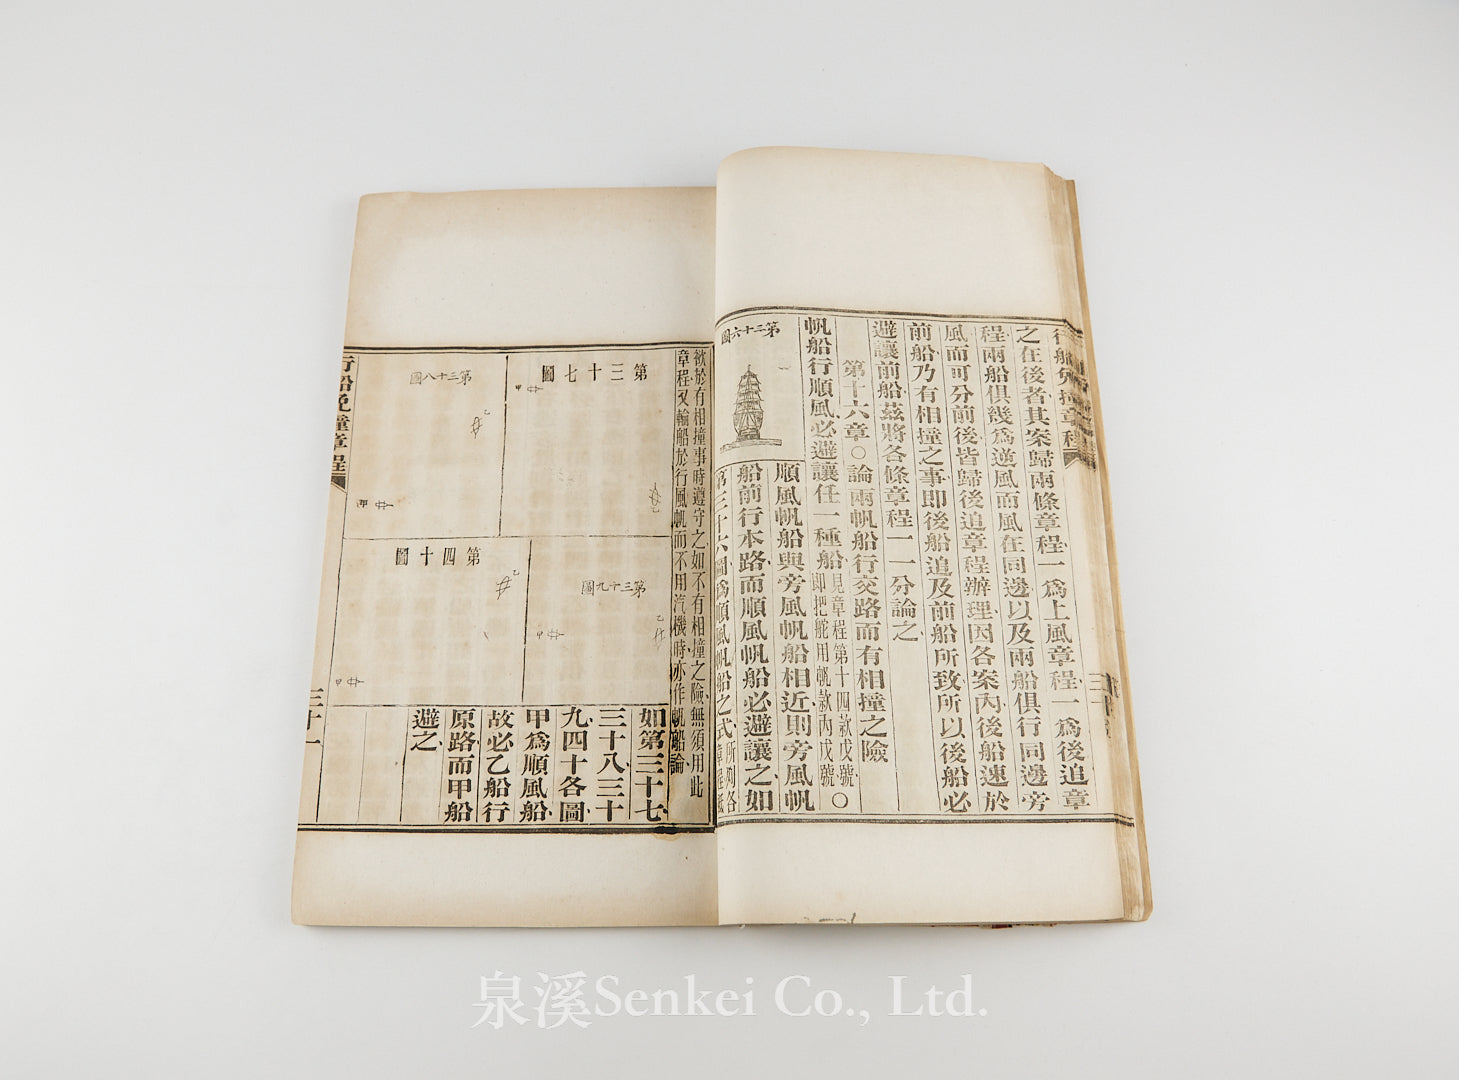 行船免撞章程
之在後者其案歸兩條章程一爲上風章程一爲後追章
程兩船俱幾爲逆風而風在同邊以及兩船俱行同邊旁
風而可分前後皆歸後追章程辦理因各案內後船速於
前船乃有相撞之事卽後船追及前船所致所以後船必
避讓前船茲將各條章程一一分論之
第十六章○論兩帆船行交路而有相撞之險
帆船行順風必避讓任一種船見章程第十四款戊號○
卽把舵用帆款丙戊號
第三十六圖
順風帆船與旁風帆船相近則旁風帆
船前行本路而順風帆船必避讓之如
第三十六圖爲順風帆船之式章程所列各
欲於有相撞事時遵守之如不有相撞之險無須用此
章程又輪船於行風帆而不用汽機時亦作帆船論
第三十七圖
甲
乙
第三十八圖
乙
甲
第三十九圖
乙
甲
第四十圖
乙
甲
如第三十七
三十八三十
九四十各圖
甲爲順風船
故必乙船行
原路而甲船
避之
行船免撞章程
三十一
泉溪Senkei Co., Ltd.